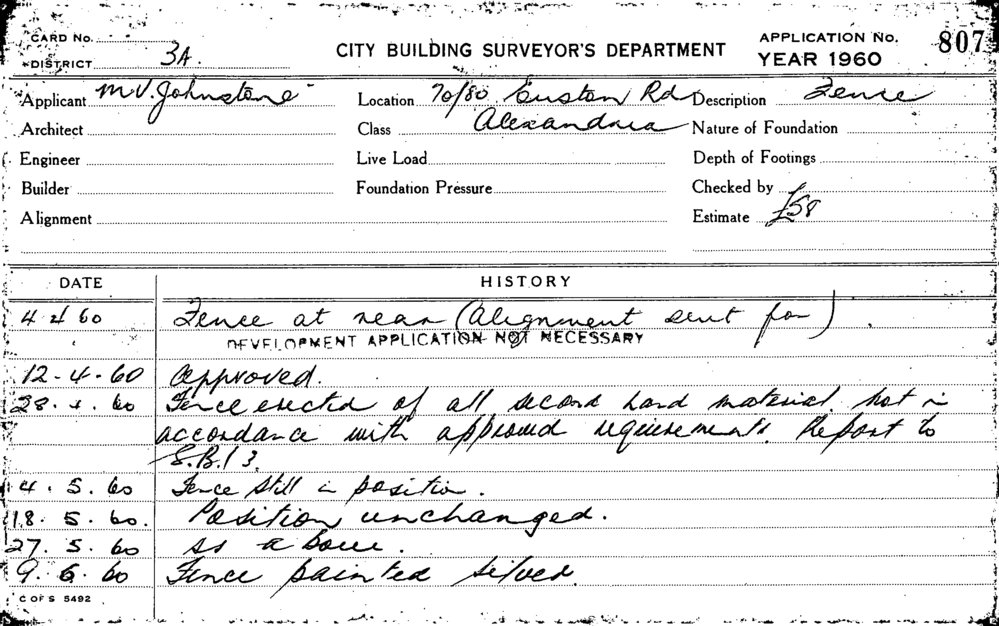 CARD No.
DISTRICT 3A.
CITY BUILDING SURVEYOR'S DEPARTMENT
APPLICATION No. 807
YEAR 1960
Applicant M V. Johnstone
Location 70/80 Euston Rd
Description Fence
Architect
Class Alexandria
Nature of Foundation
Engineer
Live Load
Depth of Footings
Builder
Foundation Pressure
Checked by
Alignment
Estimate £58
DATE
HISTORY
4 4 60 Fence at rear (Alignment sent for).
DEVELOPMENT APPLICATION NOT NECESSARY
12-4-60 Approved.
28.4.60 Fence erected of all second hand material not in
accordance with approved requirements. Report to
S.B.I 3.
4.5.60 Fence still in position.
18.5.60. Position unchanged.
27.5.60 as above.
9.6.60 Fence painted silver.
C OF S 5492